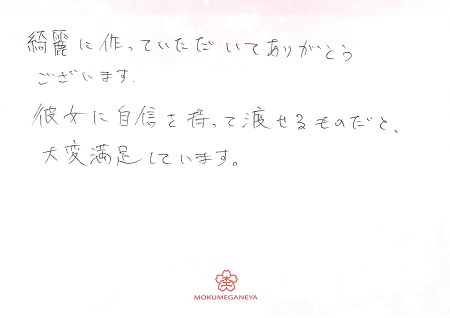 綺麗に作っていただいてありがとう
ございます.
彼女に自信を持って渡せるものだと、
大変満足しています。
MOKUMEGANEYA